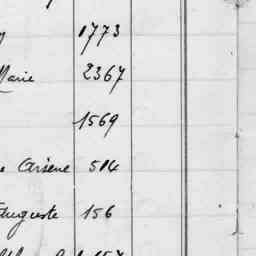 1773
Marie 2367
1569
Arsène 514
Auguste 156
157